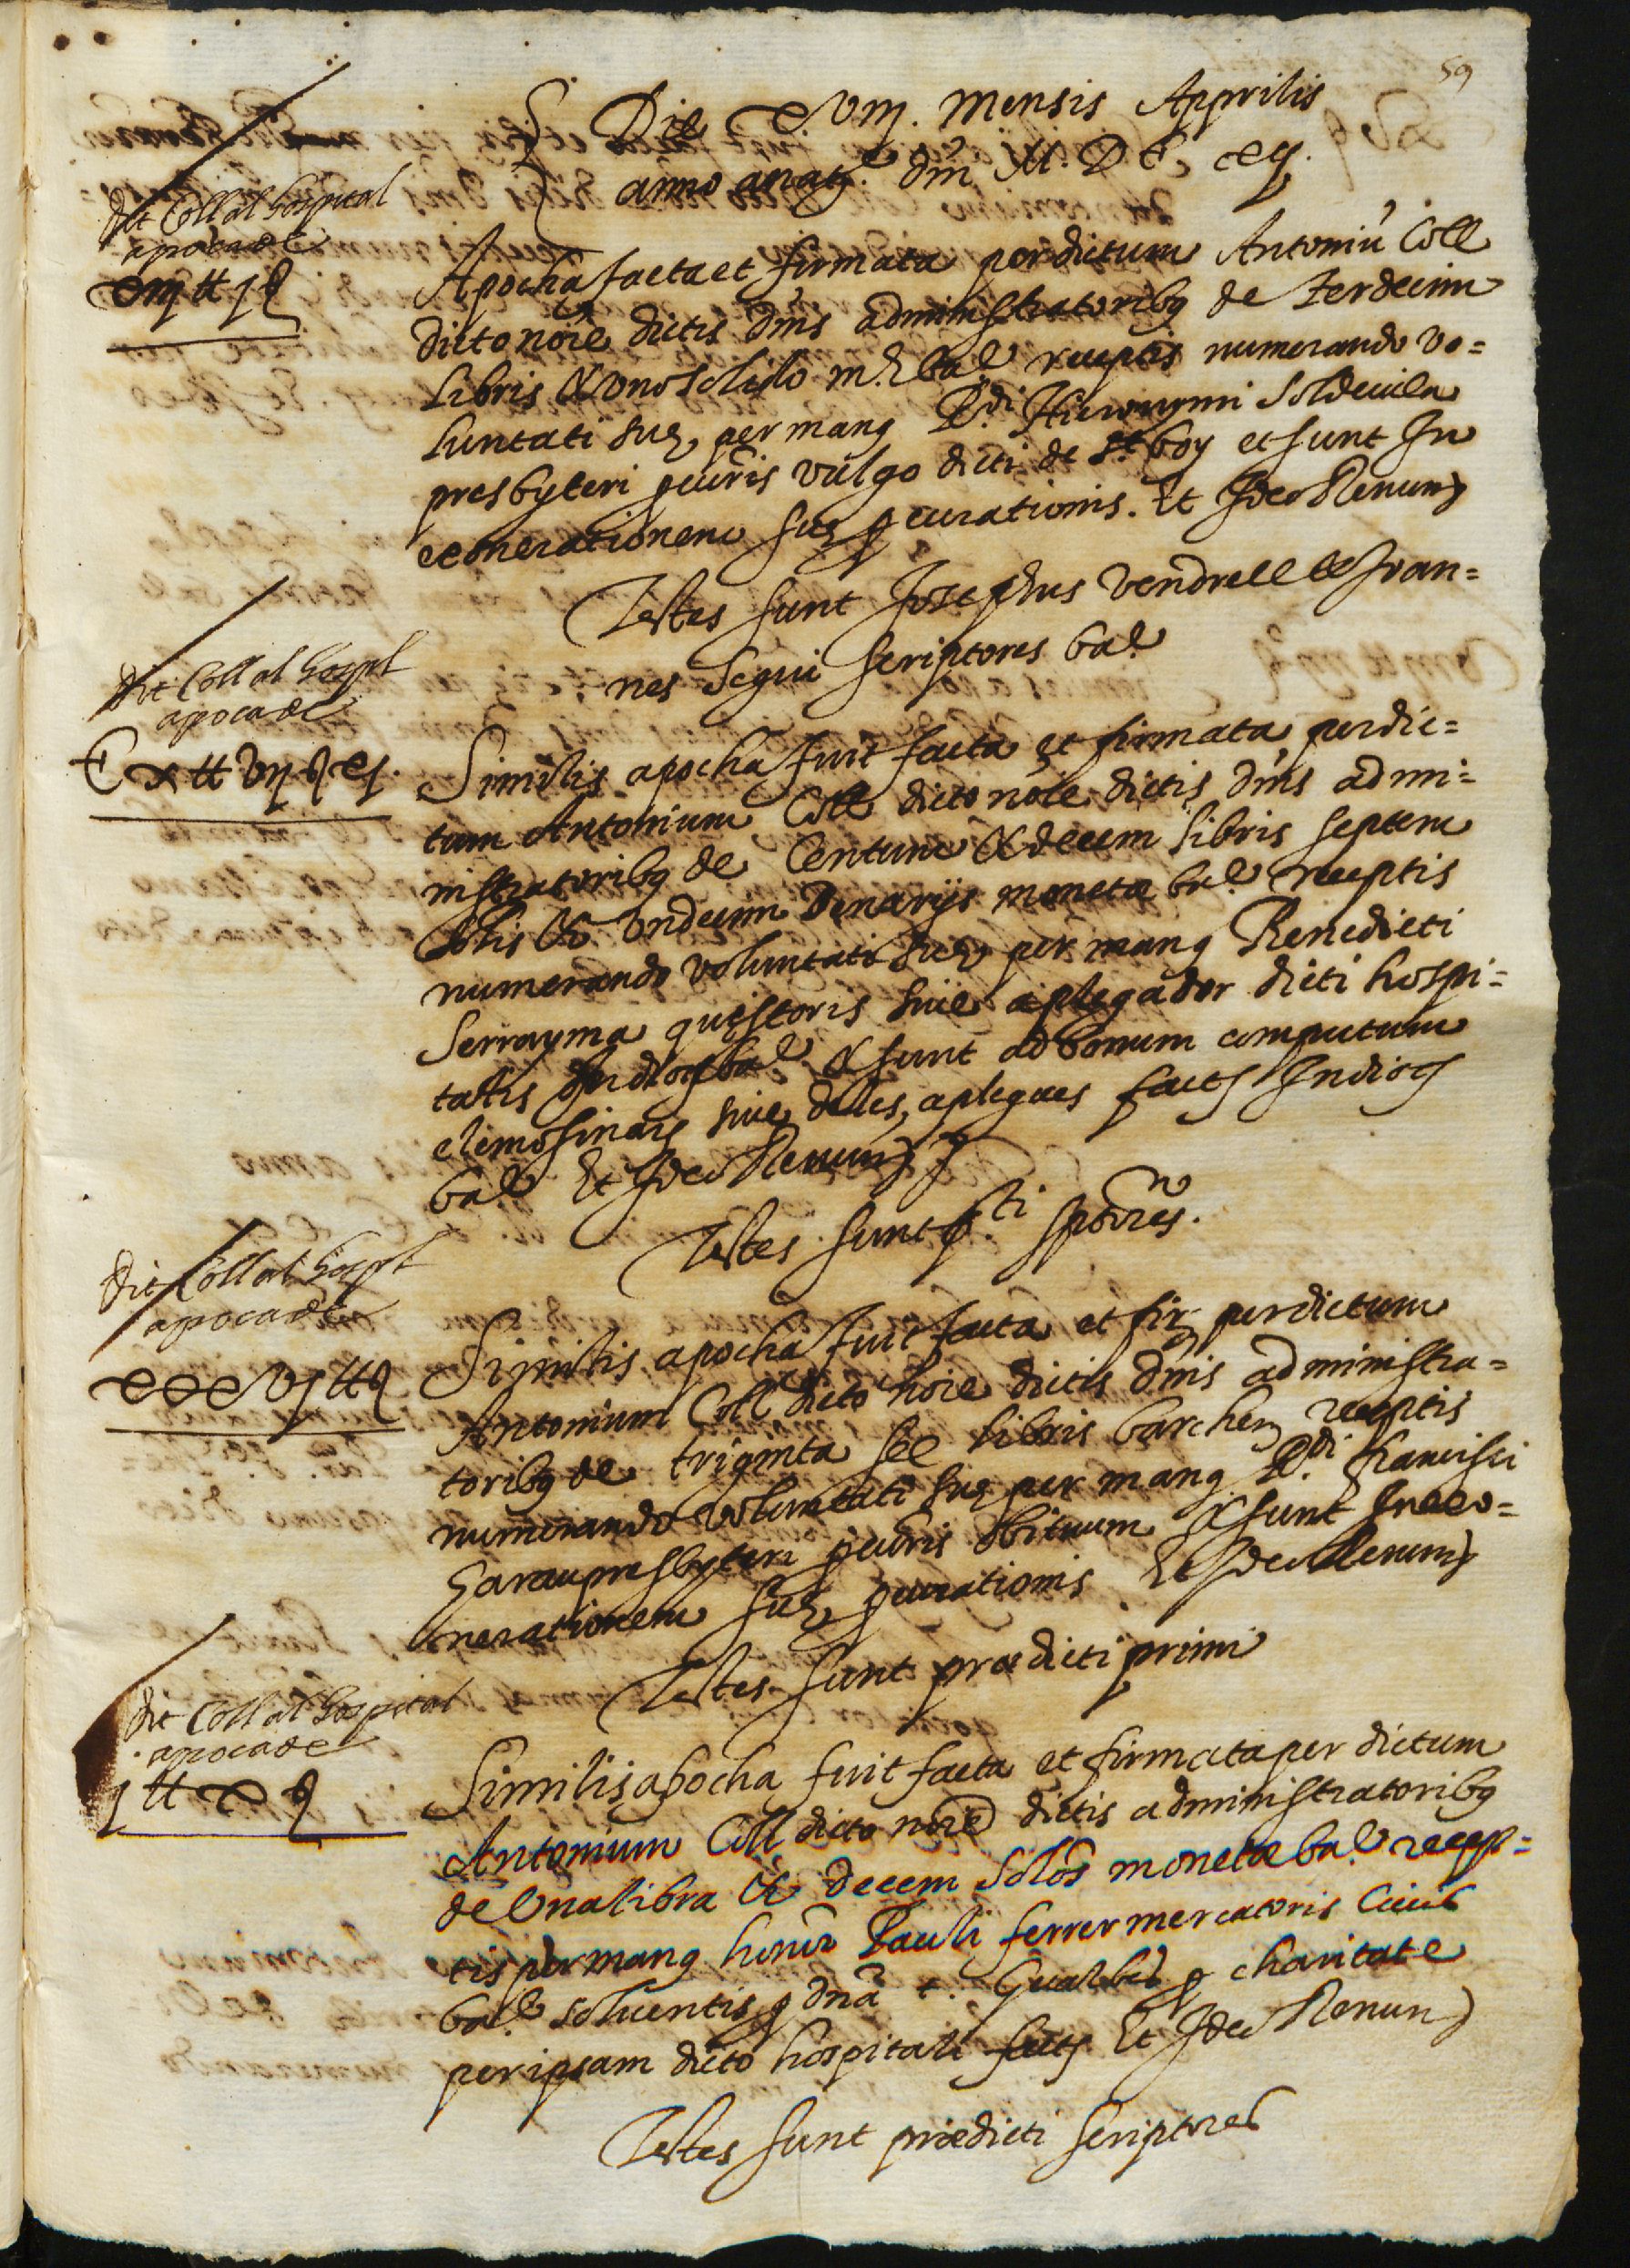 59
Die xvıȷ. mensis Apprilis
anno a natte. dñi M. D C. xxȷ.
dit Coll al hospital
apoca de
xıııȷ ħ ȷ ß
Apocha facta et firmata per dictum Antoniũ Coll
dicto noĩe dictis dñis administratoribꝯ de terdecim
libris & uno solido m. bal receptis numerando vo=
luntati suę, per manꝯ Rdi. Hieronymi Soldevila
presbyteri ꝓcuris vulgo dicti de St boy et sunt In
exonerationem suę ꝓcurationis. Et Ideo Renun
Testes sunt Josephus Vendrell & Joan=
nes Segui scriptores bal
dit Coll al hospl
apoca de
C x ħ vıȷ ß xȷ.
Similis apocha fuit facta et firmata per dic=
tum Antonium Coll dicto noĩe dictis dñis admi=
nistratoribꝯ de Centum & decem libris septem
solis & undecim Denarijs monetæ bal receptis
numerando voluntati suę per manꝯ Benedicti
Serrayma quęstoris sive aplegador dicti hospi=
talis In dioc bal & sunt ad bonum computum
elemosinarꝫ sive deles, aplegues fact In dioc
bal Et Ideo Renun
Testes sunt p.ti sptores.
dit Coll al hospl
apoca de
xxxvȷ ħ
Similis apocha fuit facta et fir perdictum
Antonium Coll dicto noĩe dictis dñis administra=
toribꝯ de triginta sex libris barchen receptis
numerando voluntati suę per manꝯ Rdi. francisci
Garau presbyteri ꝓcuris obituum & sunt In exo=
nerationem suę ꝓcurationis Et Ideo Renun
Testes sunt prædicti primi
dit Coll al hospital
apoca de
ȷ ħ x ß
Similis apocha fuit facta et firmata per dictum
Antonium Coll dicto noĩe dictis administratoribꝯ
de Una libra & decem solõs monetæ bal recep=
tis per manꝯ honor Pauli ferrer mercatoris Civis
bal solventis ꝓ dña t. Gualbes ꝓ charitate
per ipsam dicto hospitali fact Et Ideo Renun
Testes sunt prædicti scriptores